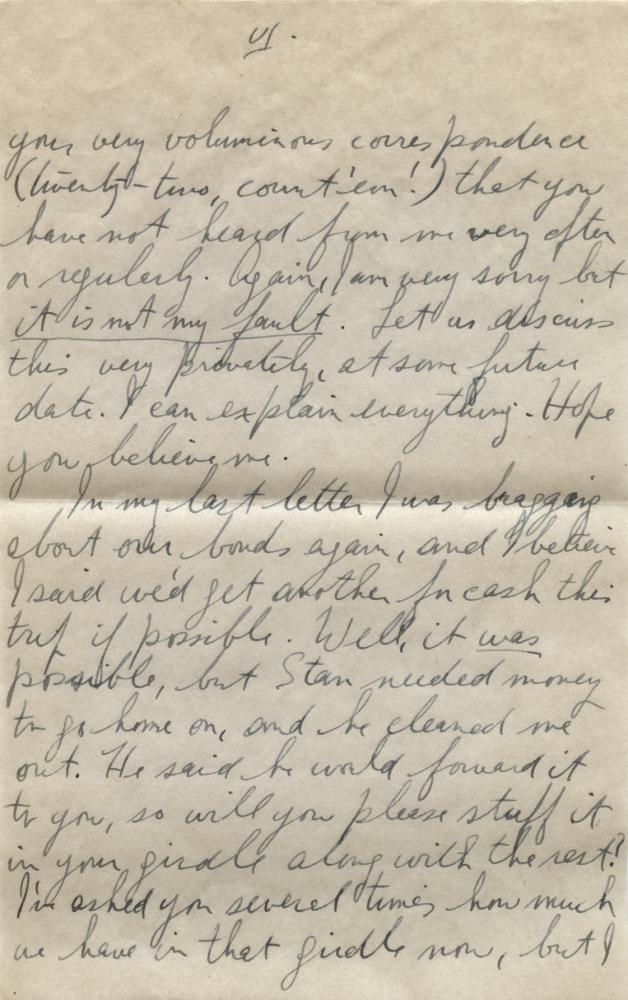 VI.
your very voluminous correspondence
(twenty-two, count 'em!) that you
have not heard from me very often
or regularly. Again, I am very sorry but
it is not my fault. Let us discuss
this very privately, at some future
date. I can explain everything. Hope
you believe me.
In my last letter I was bragging
about our bonds again, and I believe
I said we'd get another for cash this
trip if possible. Well, it was
possible, but Stan needed money
to go home on, and he cleaned me
out. He said he would forward it
to you, so will you please stuff it
in your girdle along with the rest?
I've asked you several times how much
we have in that girdle now, but I